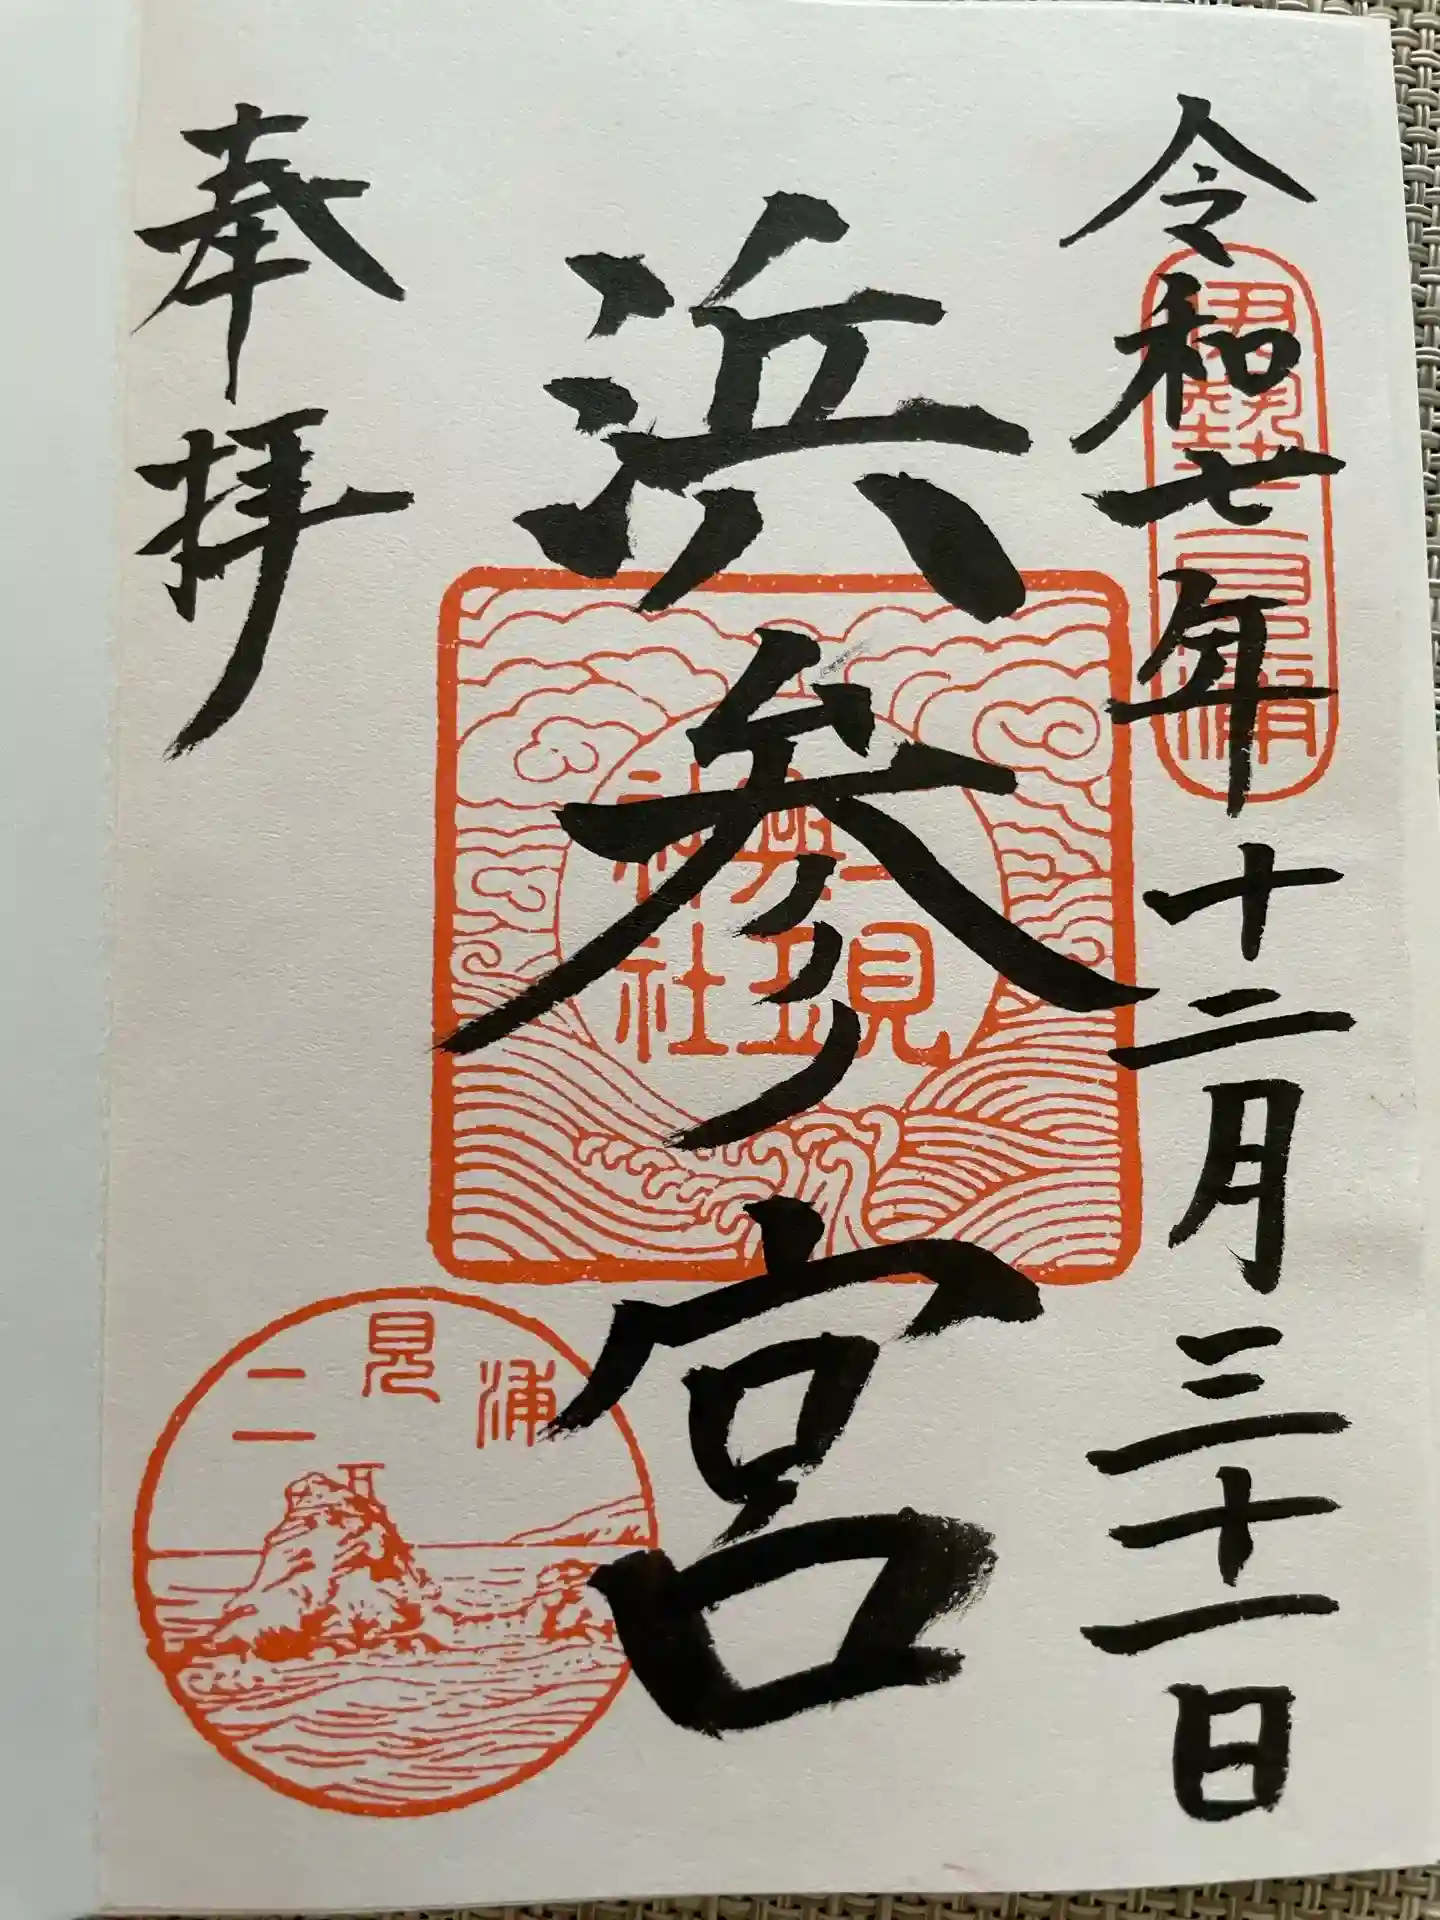 令和七年十二月三十一日
伊勢二見浦
浜参宮
二見
興玉
神社
奉拝
二見浦